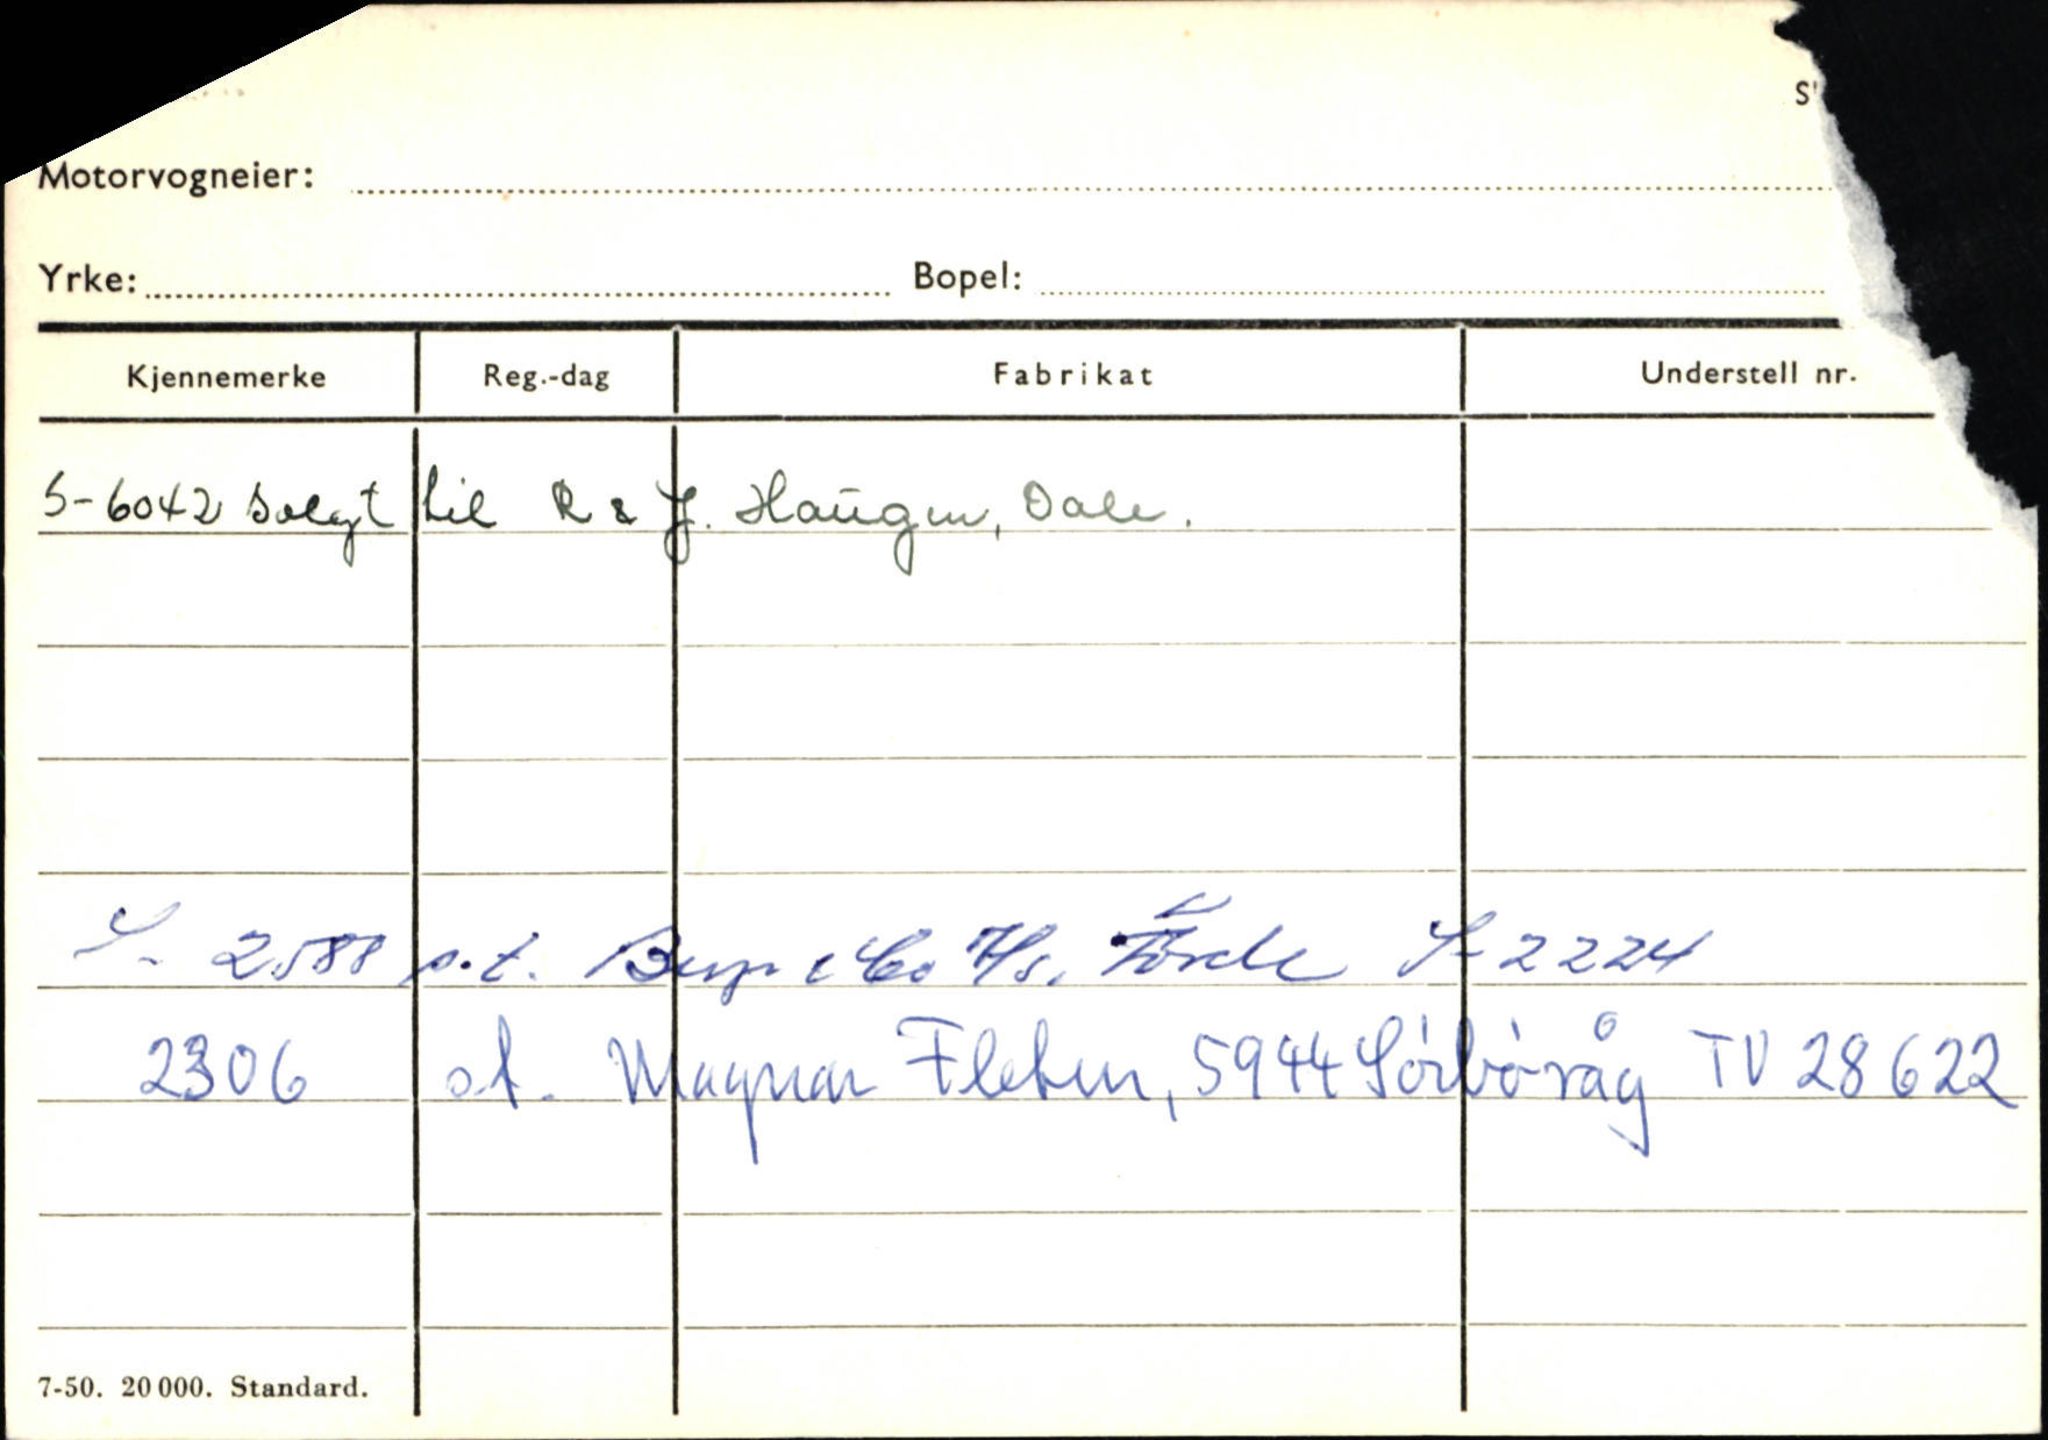 S
Motorvogneier:
Yrke: Bopel:
Kjennemerke Reg.-dag Fabrikat Understell nr.
S-6042 Solgt til R & J. Haugen, Dale.
S- 2588 s.t. & Co A/s. Förde S-2224
2306 s.t. Magnar Flekun, 5944 Sörbövåg TV 28622
7-50. 20 000. Standard.